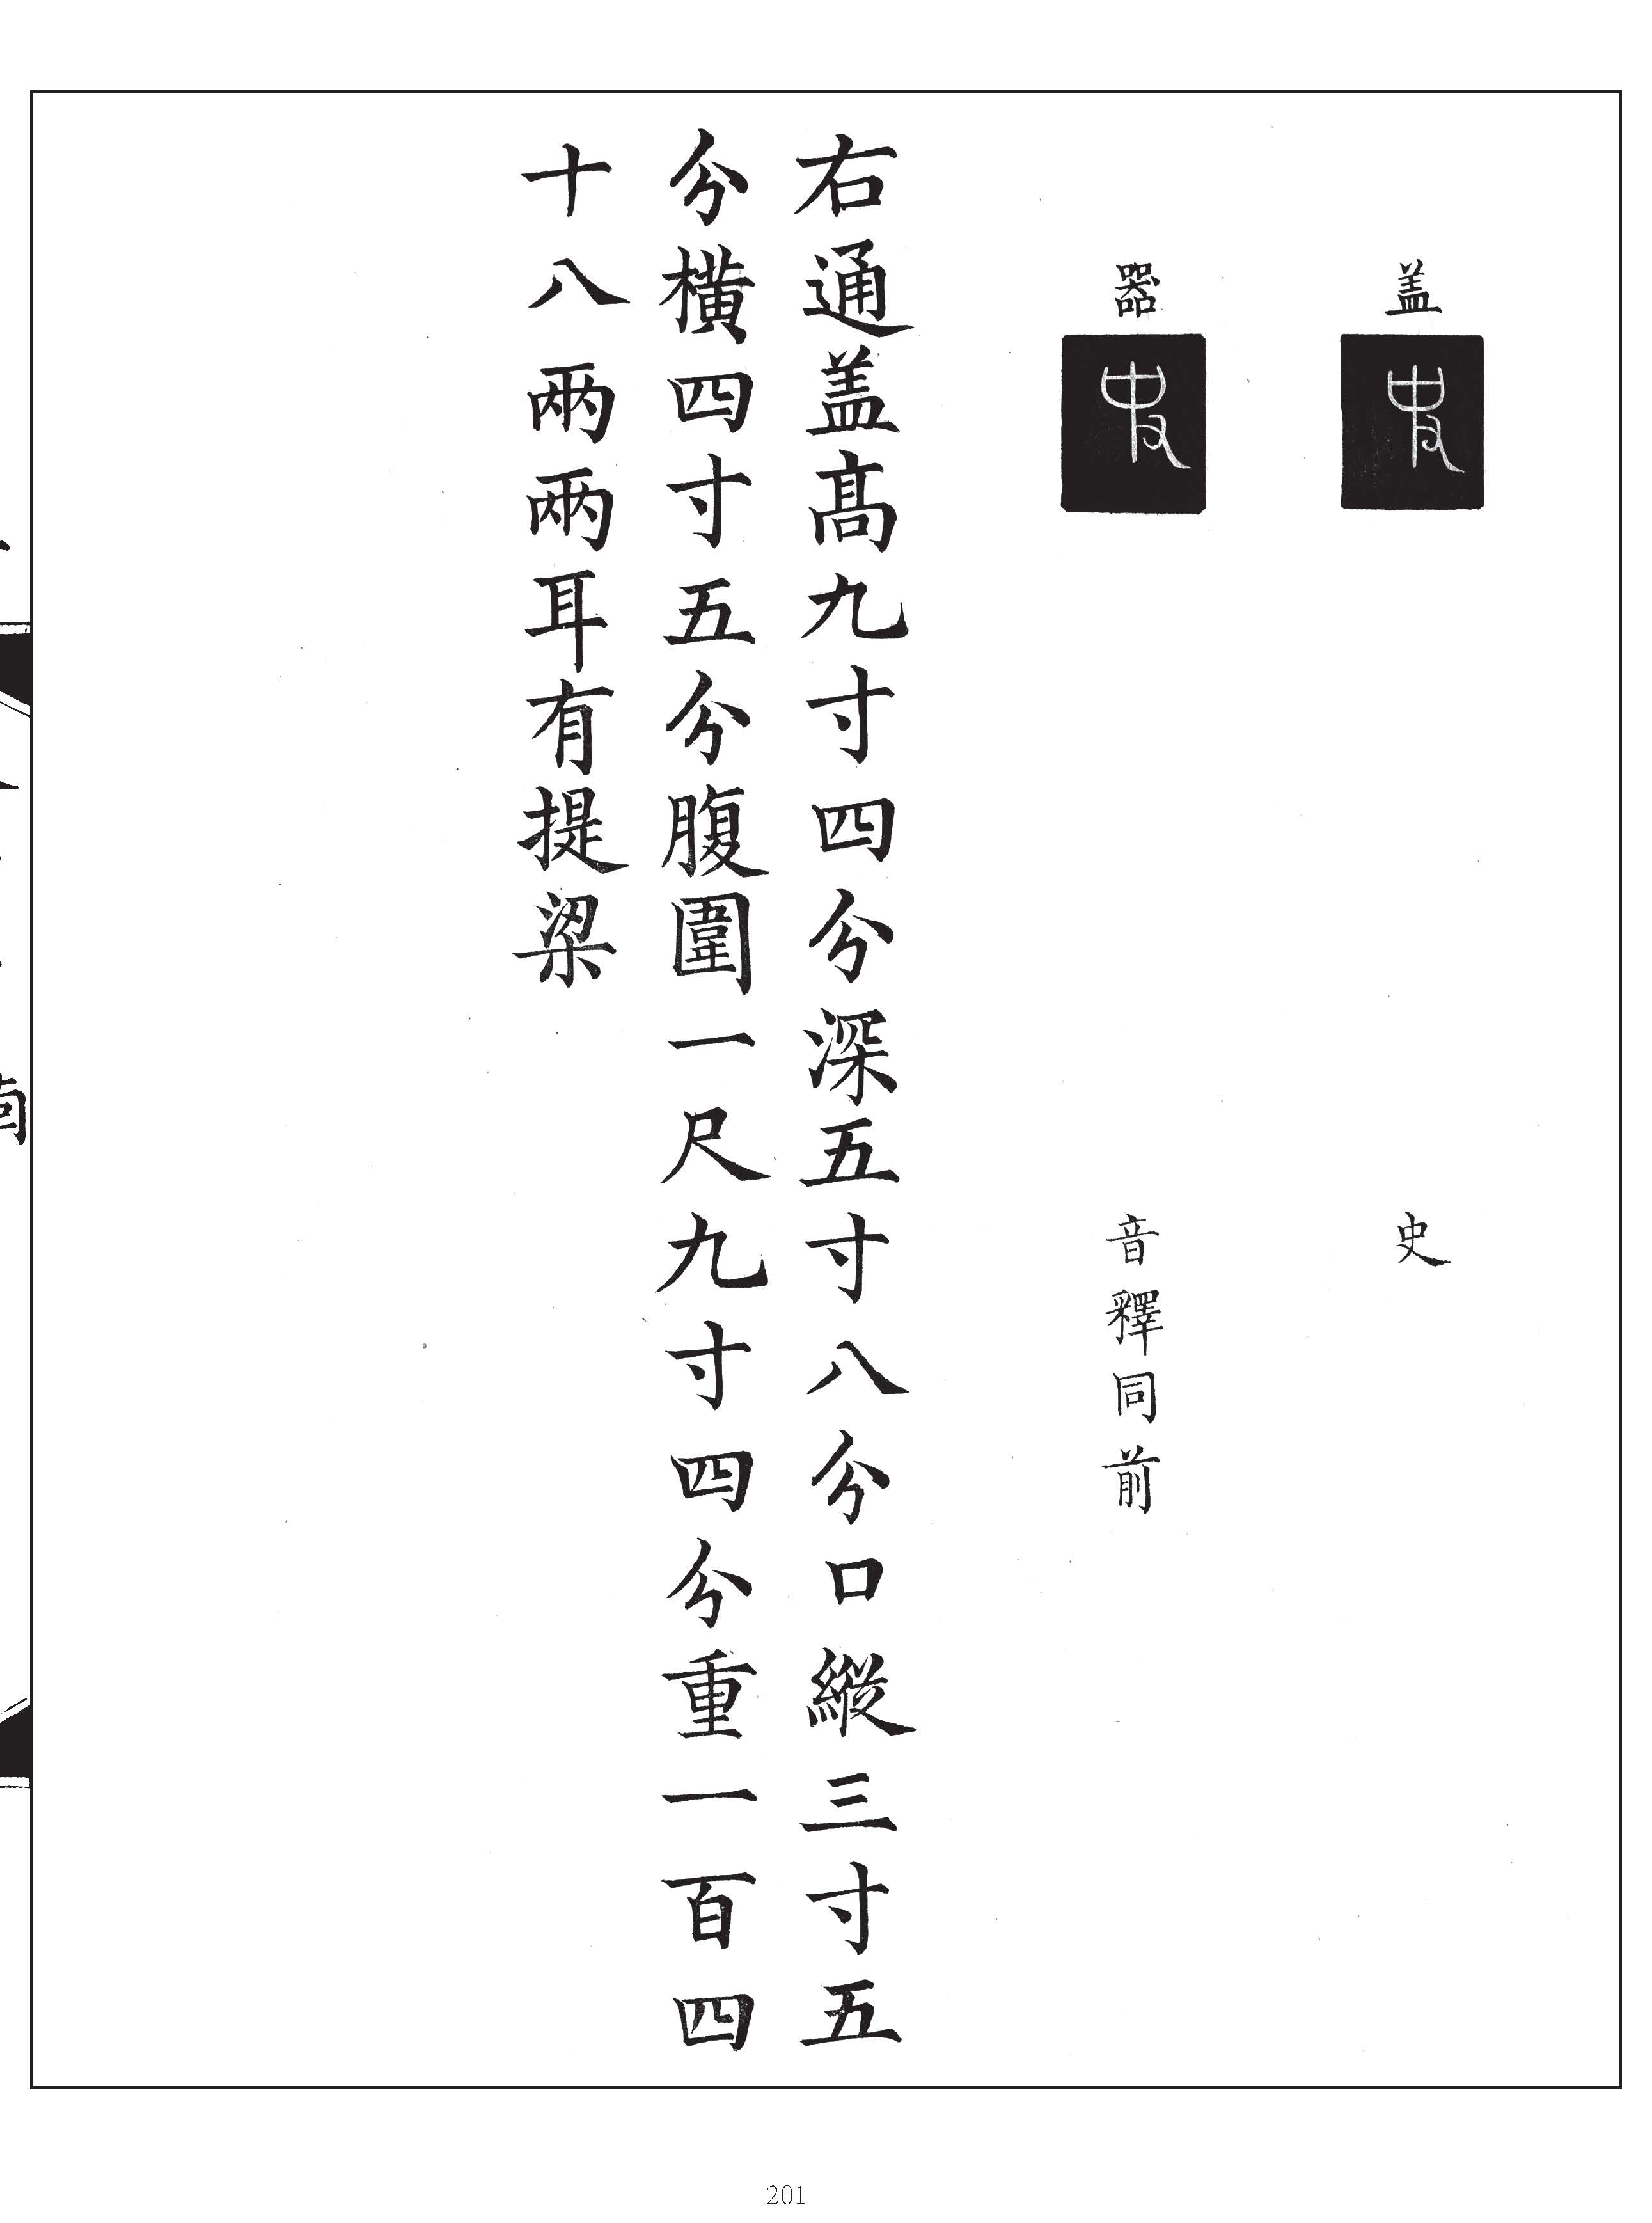 盖 史
器 音釋同前
右通盖髙九寸四分深五寸八分口縱三寸五
分橫四寸五分腹圍一尺九寸四分重一百四
十八兩兩耳有提梁
201